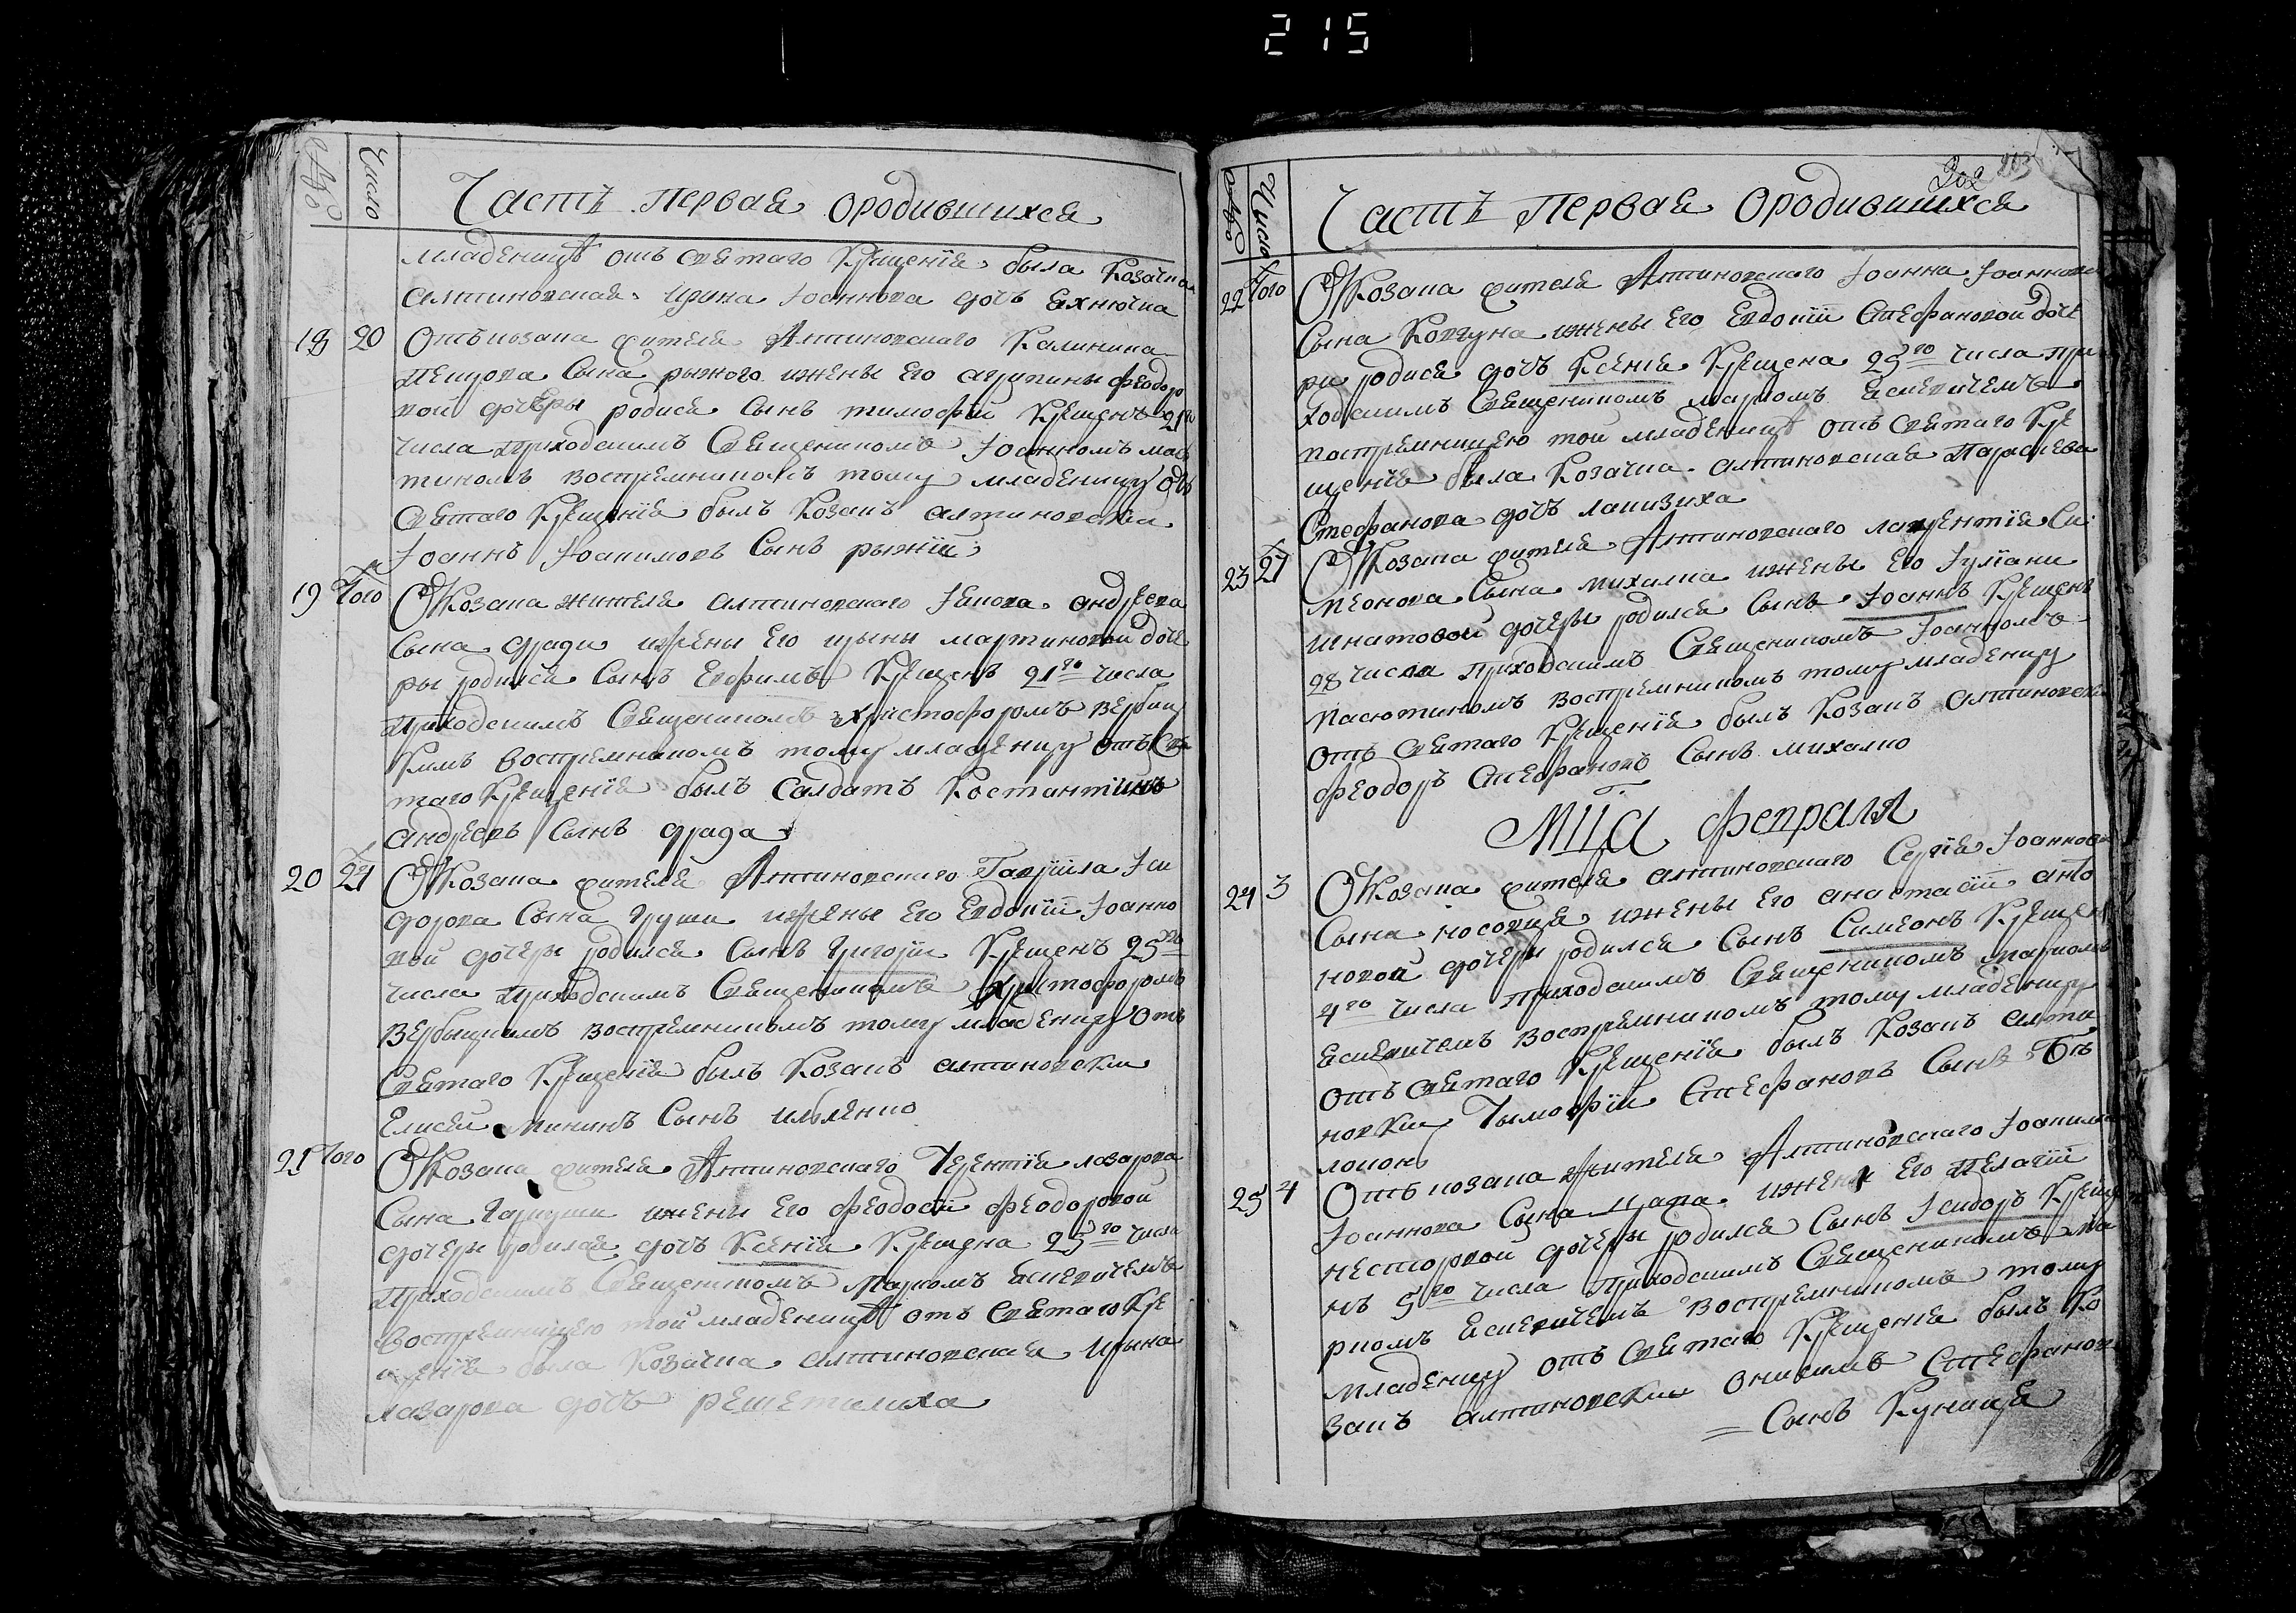 215
Число
Часть первая о родившихся
младенцѣ отъ святаго крещенія была козачка
алтиновская Ирина Іоаннова дочь
18 20 Отъ козака жителя Алтиновского Калиника
сына рыжого и жены его агрипины феодоро
вой дочеры родися сынъ тимофѣй крещенъ 21го
числа приходскимъ священикомъ Іоанномъ
воспріемникомъ тому младенцу отъ
святаго крещенія былъ козакъ алтиновски
Іоаннъ Іоакимовъ сынъ рыжій
19 Того Ѿ козака жителя алтиновского Іакова андреева
сына драги и жены его ирыны мартиновой доче
ры родился сынъ Евфимъ крещенъ 21го числа
приходскимъ священикомъ христофоромъ вербиц
кимъ воспріемникомъ тому младенцу отъ свя
таго крещенія былъ салдатъ костантинъ
андреевъ сынъ драга
20 24 Ѿ козака жителя Алтиновского Гавріила Іси
дорова сына груши и жены его Евдокіи Іоанно
вой дочеры родился сынъ григорій крещенъ 25го
числа приходскимъ священикомъ христофоромъ
вербицкимъ воспріемникомъ тому младенцу отъ
святаго крещенія былъ козакъ алтиновски
Елисей мининъ сынъ
21 Того Ѿ козака жителя Алтиновского Терентія лазарова
сына и жены его феодосіи феодоровой
дочеры родилася дочь Ксенія крещена 25го числа
приходскимъ священикомъ маркомъ
воспріемницею той младенице отъ святаго кре
щенія была козачка алтиновская Ирина
лазарова дочь решетилиха
202
Число
Часть первая о родившихся
22 Того Ѿ козака жителя Алтиновского Іоанна Іоаннова
сына Ковтуна и жены его Евдокіи Стефановой доче
ри родися дочь Ксенія крещена 25го числа при
ходскимъ священикомъ маркомъ
воспріемницею той младенице отъ святаго кре
щенія была козачка алтиновская Параскева
Стефанова дочь
23 27 Ѿ козака жителя Алтиновского лаврентія Си
меонова сына михалка и жены его Іуліани
игнатовой дочеры родился сынъ Іоаннъ крещенъ
28 числа приходскимъ священикомъ Іоанномъ
воспріемникомъ тому младенцу
отъ святаго крещенія былъ козакъ алтиновски
феодоръ Стефановъ сынъ михалко
Мца февраля
24 3 Ѿ козака жителя алтиновского Сергія Іоаннова
сына и жены его анастасіи анто
новой дочеры родился сынъ Симеонъ крещенъ
4го числа приходскимъ священикомъ маркомъ
воспріемникомъ тому младенцу
отъ святаго крещенія былъ козакъ алти
новски Тимофій Стефановъ сынъ Бѣ
локонь
25 4 Отъ козака жителя Алтиновского Іоакима
Іоаннова сына и жены его Пелагіи
несторовой дочеры родился сынъ Ісидоръ креще
нъ 5го числа приходскимъ священикомъ ма
ркомъ воспріемникомъ тому
младенцу отъ святаго крещенія былъ ко
закъ алтиновски онисимъ Стефановъ
сынъ Куница